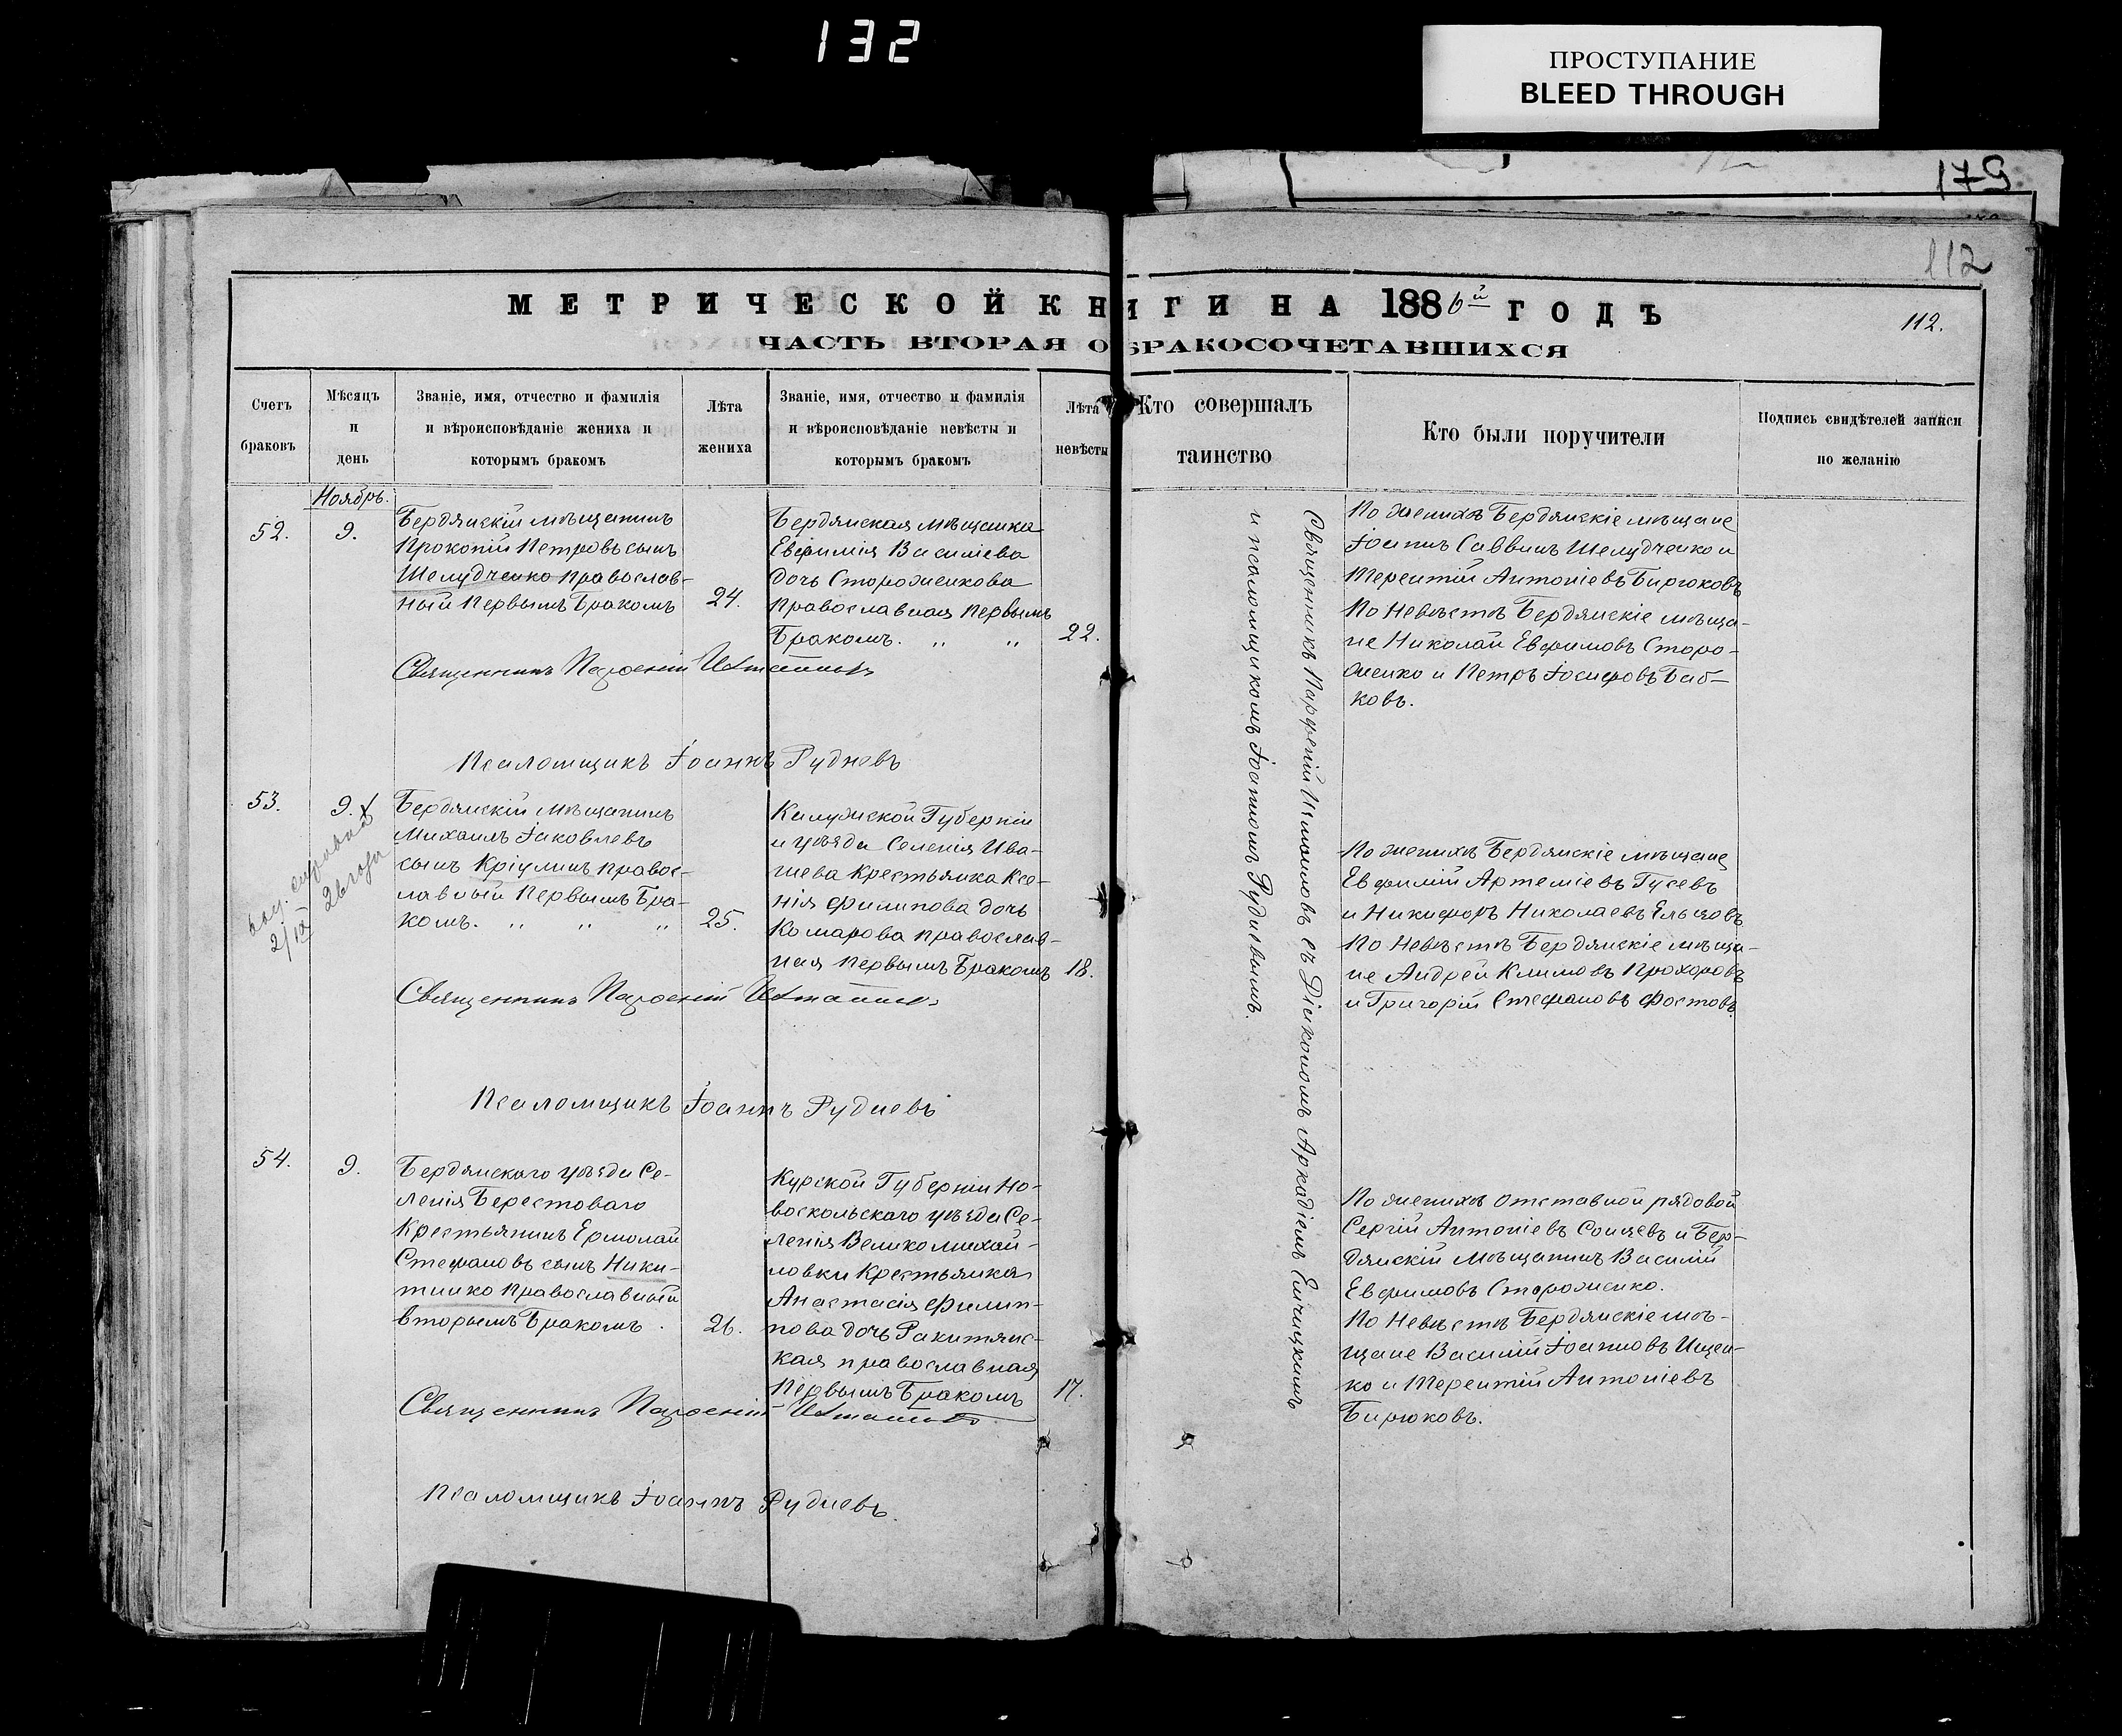 132
ПРОСТУПАНИЕ
BLEED THROUGH
179
112
МЕТРИЧЕСКОЙ КНИГИ НА 1886й ГОДЪ
112.
ЧАСТЬ ВТОРАЯ О БРАКОСОЧЕТАВШИХСЯ
Счетъ
браковъ
Мѣсяцъ
и
день
Званіе, имя, отчество и фамилія
и вѣроисповѣданіе жениха и
которымъ бракомъ
Лѣта
жениха
Званіе, имя, отчество и фамилія
и вѣроисповѣданіе невѣсты и
которымъ бракомъ
Лѣта
невѣсты
Кто совершалъ
таинство
Кто были поручители
Подпись свидѣтелей записи
по желанію
Ноябрь.
52.
9.
Бердянскій мѣщанинъ
Прокопій Петровъ сынъ
Шелудченко православ-
ный первымъ бракомъ
24.
Бердянская мѣщанка
Евфимія Василіева
дочь Стороженкова
православная первымъ
бракомъ. „ „
22.
Священникъ Парѳеній
Псаломщикъ Іоаннъ Рудневъ
По женихѣ Бердянскіе мѣщане
Іоаннъ Саввинъ Шелудченко и
Терентій Антоніевъ Бирюковъ
По невѣстѣ Бердянскіе мѣща-
не Николай Евфимовъ Сторо-
женко и Петръ Іосифовъ Баб-
ковъ.
53.
9.
выд. справка
26 года
Бердянскій мѣщанинъ
Михаилъ Іаковлевъ
сынъ Кріулинъ правос-
лавный первымъ бра-
комъ. „ „ „
25.
Калужской Губерніи
и уѣзда Селенія Ива-
шева крестьянка Ксе-
нія Филипова дочь
Комарова православ-
ная первымъ бракомъ
18.
Священникъ Парѳеній
Псаломщикъ Іоаннъ Рудневъ
По женихѣ Бердянскіе мѣщане
Евфимій Артеміевъ Гусевъ
и Никифоръ Николаевъ
По невѣстѣ Бердянскіе мѣща-
не Андрей Климовъ Прохоровъ
и Григорій Стефановъ Фостовъ.
54.
9.
Бердянскаго уѣзда Се-
ленія Берестоваго
крестьянинъ Ермолай
Стефановъ сынъ Ники-
тинко православный
вторымъ бракомъ.
26.
Курской Губерніи Но-
воскольскаго уѣзда Се-
ленія Великомихай-
ловки крестьянка
Анастасія Филип-
пова дочь Ракитянс-
кая православная
первымъ бракомъ
17.
Священникъ Парѳеній
Псаломщикъ Іоаннъ Рудневъ
По женихѣ отставной рядовой
Сергій Антоніевъ и Бер-
дянскій мѣщанинъ Василій
Евфимовъ Стороженко.
По невѣстѣ Бердянскіе мѣ-
щане Василій Іоанновъ Ищен-
ко и Терентій Антоніевъ
Бирюковъ.
Священникъ Парѳеній съ Діакономъ Аркадіемъ
и псаломщикомъ Іоанномъ Рудневымъ.